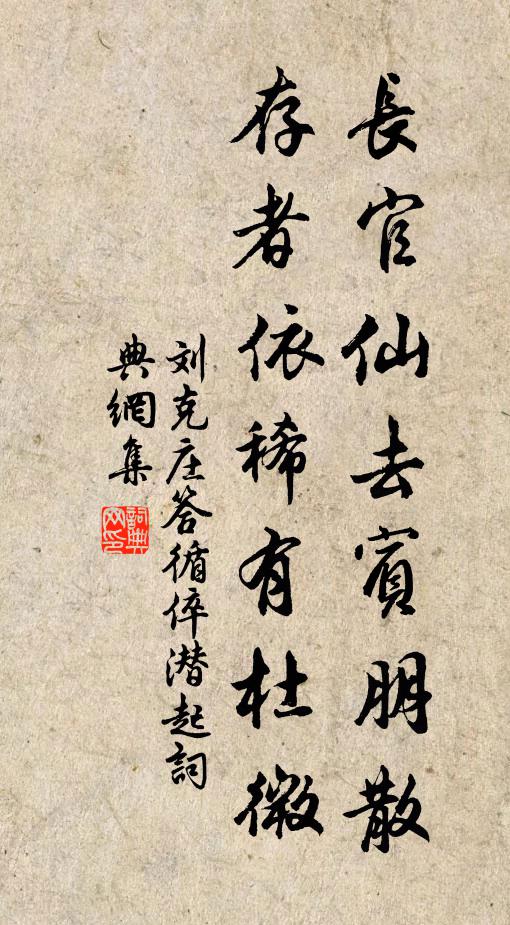 長官仙去賓朋散
存者依稀有杜微
刘克庄答循倅潜起詞
典網集
詞典网印